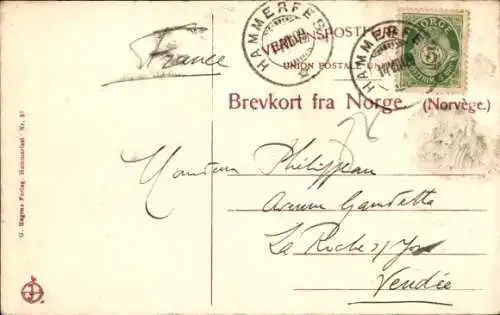 France
HAMMERFEST
VERDENSPOSTFOR
UNION POSTALE UNI
HAMMERFE
NORGE
5
Brevkort fra Norge. (Norvège.)
Monsieur Philippeau
Avenue Gambetta
La Roche s/ Yon
Vendée
G. Hagens Forlag, Hammerfest Nr. 37